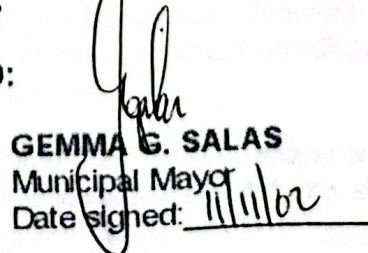 :
GEMMA G. SALAS
Municipal Mayor
Date signed: 11/11/02